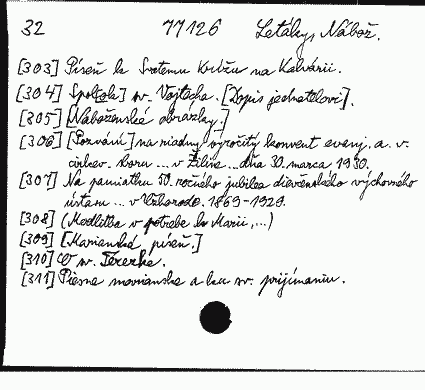 32 77126 Letáky, Nábož.
[303] Píseň k Svatemu Krížu na Kalvárii.
[304] Spol[ok] sv. Vojtecha. [Dopis jednatelovi].
[305] [Náboženské obrazky.]
[306] [Pozvání] na riadny výročitý konvent evanj. a. v.
cirkev. sboru ... v Žiline ... dňa 30. marca 1930.
[307] Na pamiatku 50. ročného jubilea dievčenského výchovného
ústavu ... v Užhorode. 1869-1929.
[308] (Modlitba v potrebe k Marii, ...)
[309] [Marianská píseň.]
[310] O sv. Terezke.
[311] Piesne marianske a ku sv. prijímaniu.